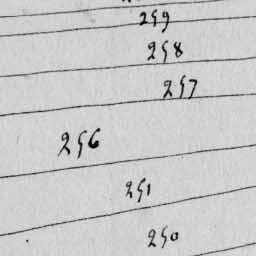 259
258
257
256
251
250